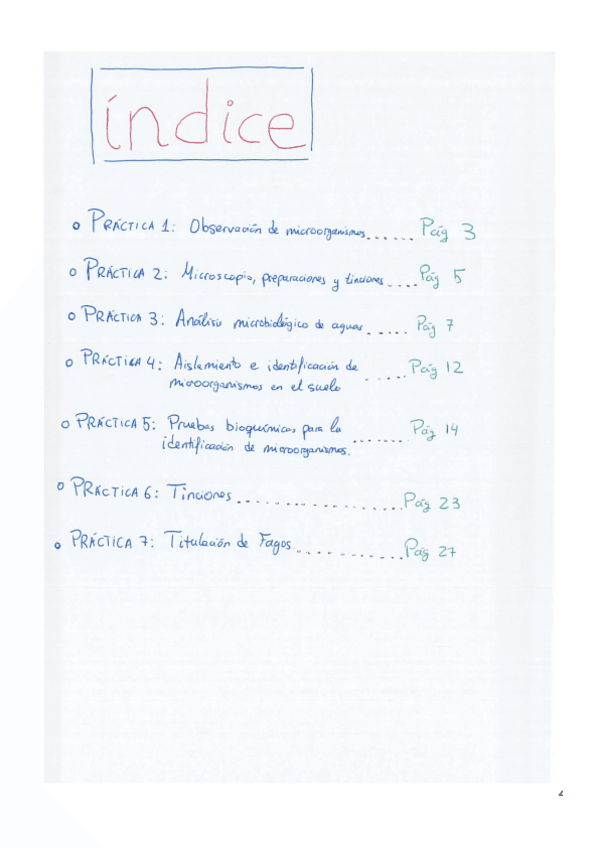 índice
o PRÁCTICA 1: Observación de microorganismos ...... Pág 3
o PRÁCTICA 2: Microscopio, preparaciones y tinciones .... Pág 5
o PRÁCTICA 3: Análisis microbiológico de aguas ...... Pág 7
o PRÁCTICA 4: Aislamiento e identificación de
microorganismos en el suelo ...... Pág 12
o PRÁCTICA 5: Pruebas bioquímicas para la
identificación de microorganismos. ....... Pág 14
o PRÁCTICA 6: Tinciones .................. Pág 23
o PRÁCTICA 7: Titulación de Fagos ............ Pág 27